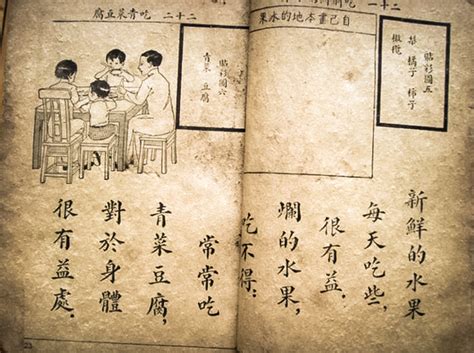 二十一 吃
貼彩圖五
梨 橘子 柿子
橄欖
自己畫本地的水果
新鮮的水果
每天吃些,
很有益.
爛的水果,
吃不得;
二十二 吃青菜豆腐
貼彩圖六
青菜 豆腐
常常吃
青菜豆腐,
對於身體
很有益處.